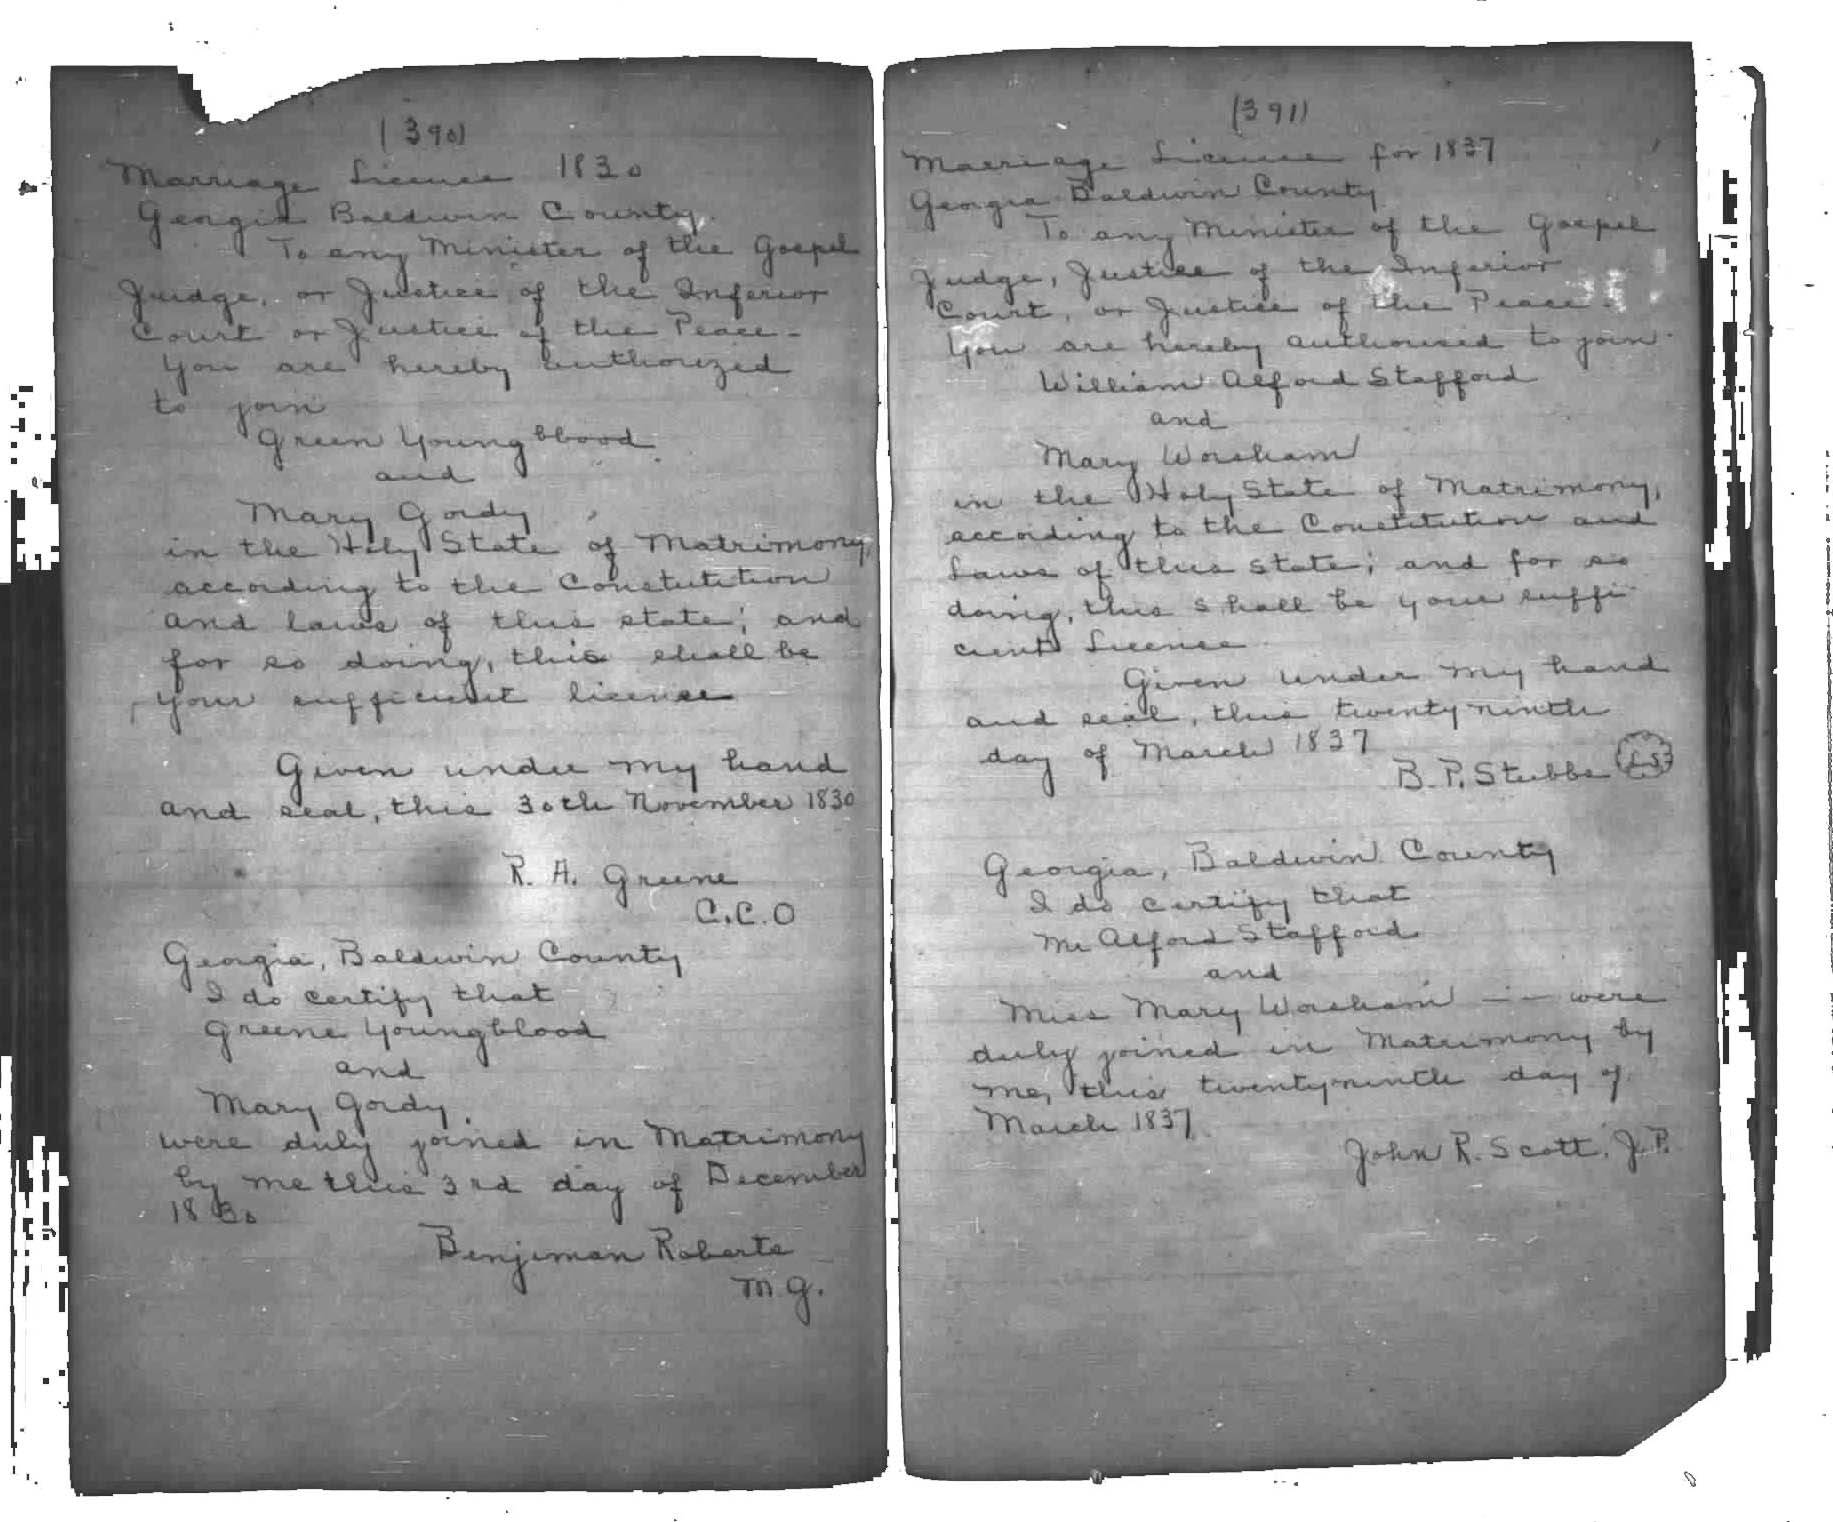 (390)
Marriage Licence 1830
Georgia Baldwin County.
To any Minister of the Gospel
Judge, or Justice of the Inferior
Court or Justice of the Peace -
You are hereby authorized
to join
Green Youngblood
and
Mary Gordy
in the Holy State of Matrimony,
according to the Constitution
and laws of this state; and
for so doing, this shall be
your sufficient licence
Given under my hand
and seal, this 30th November 1830
R. A. Greene
C.C.O
Georgia, Baldwin County
I do certify that
Greene Youngblood
and
Mary Gordy.
were duly joined in Matrimony
by me this 3rd day of December
1830
Benjiman Roberts
M G.
(391)
Marriage Licence for 1837
Georgia Baldwin County
To any Minister of the Gospel
Judge, Justice of the Inferior
Court, or Justice of the Peace -
You are hereby authorised to join
William Alford Stafford
and
Mary Worsham
in the Holy State of Matrimony,
according to the Constitution and
Laws of this state; and for so
doing, this shall be your suffi-
cient Licence
Given under my hand
and seal, this twenty ninth
day of March 1837
B. P. Stubbs LS
Georgia, Baldwin County
I do certify that
Mr Alford Stafford
and
Miss Mary Worsham were
duly joined in Matrimony by
me, this twenty ninth day of
March 1837
John R. Scott, J.P.